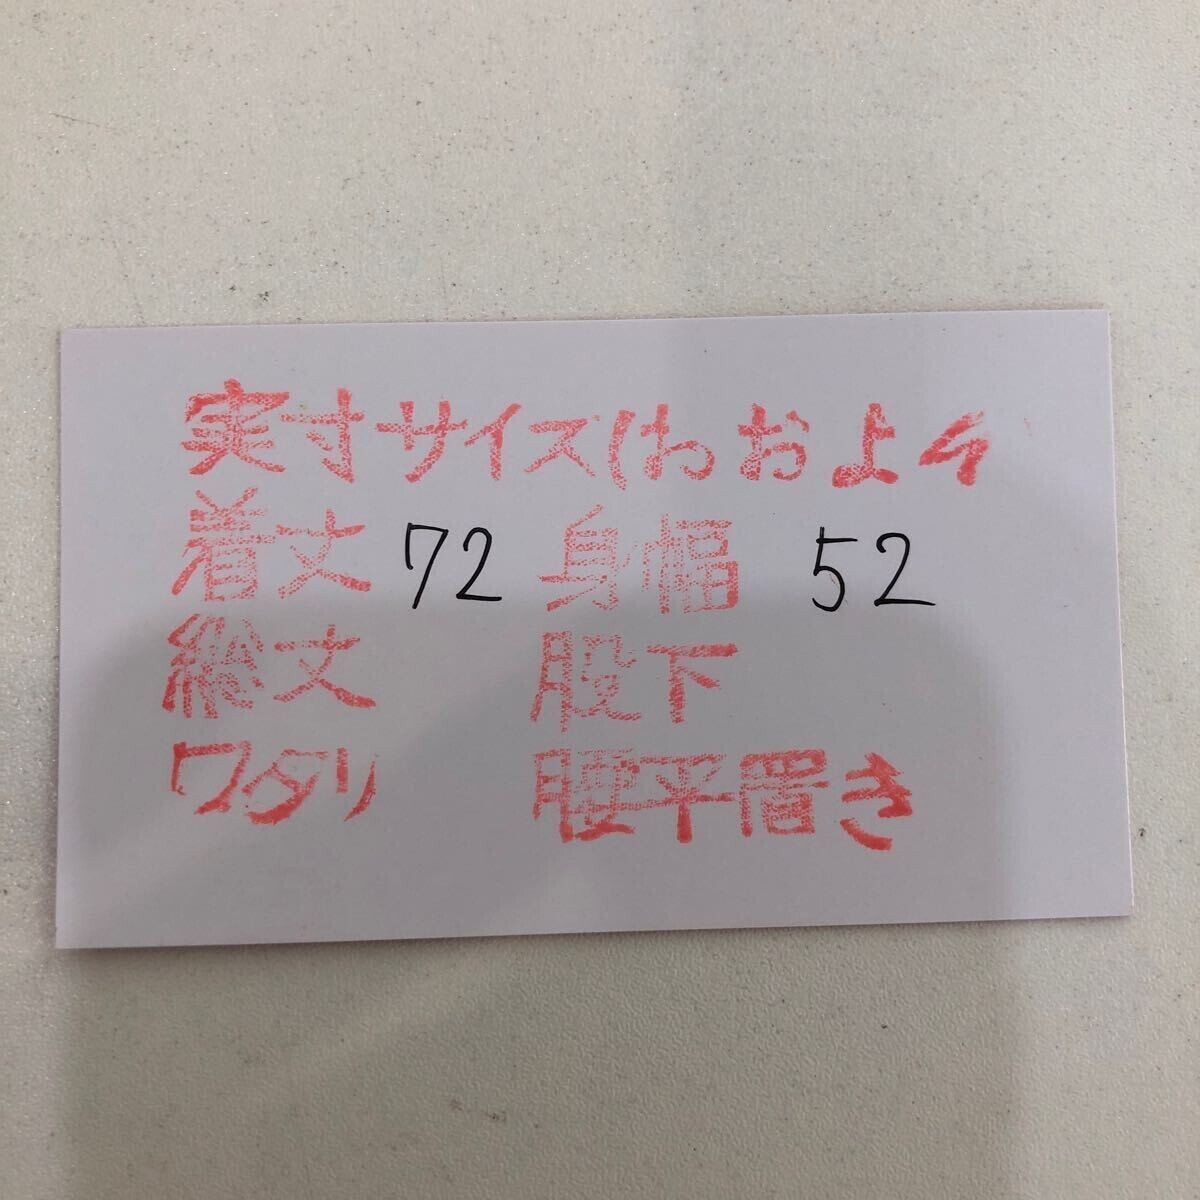 実寸サイズはおおよそ
着丈 72 身幅 52
総丈 股下
ワタリ 腰平置き